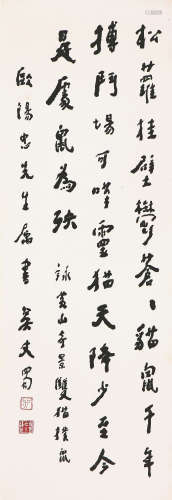 松蘿挂壁鬱蒼〻貓鼠千年
搏鬥場可嘆靈猫天降少至今
是處鼠為殃 詠黃山奇景雙猫撲鼠
歐陽忠先生屬書 吳丈蜀